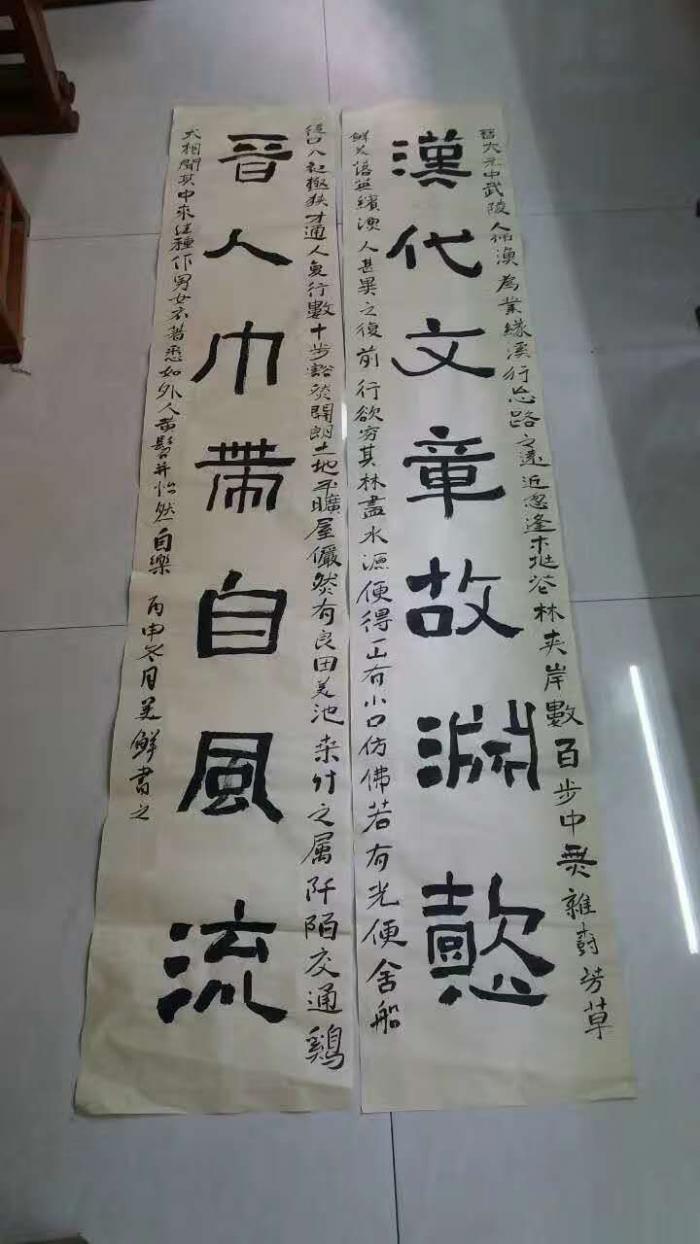 晉太元中武陵人捕漁為業緣溪行忘路之遠近忽逢桃花林夾岸數百步中無雜樹芳草
漢代文章故淵懿
鮮美落英繽漁人甚異之復前行欲窮其林盡水源便得一山有小口仿佛若有光便舍船
從口入初極狹才通人复行數十步豁然開朗土地平曠屋儼然有良田美池桑竹之属阡陌交通鷄
晉人巾帶自風流
犬相聞其中來往種作男女衣著悉如外人黄髫并怡然自樂 丙申冬月美鮮書之